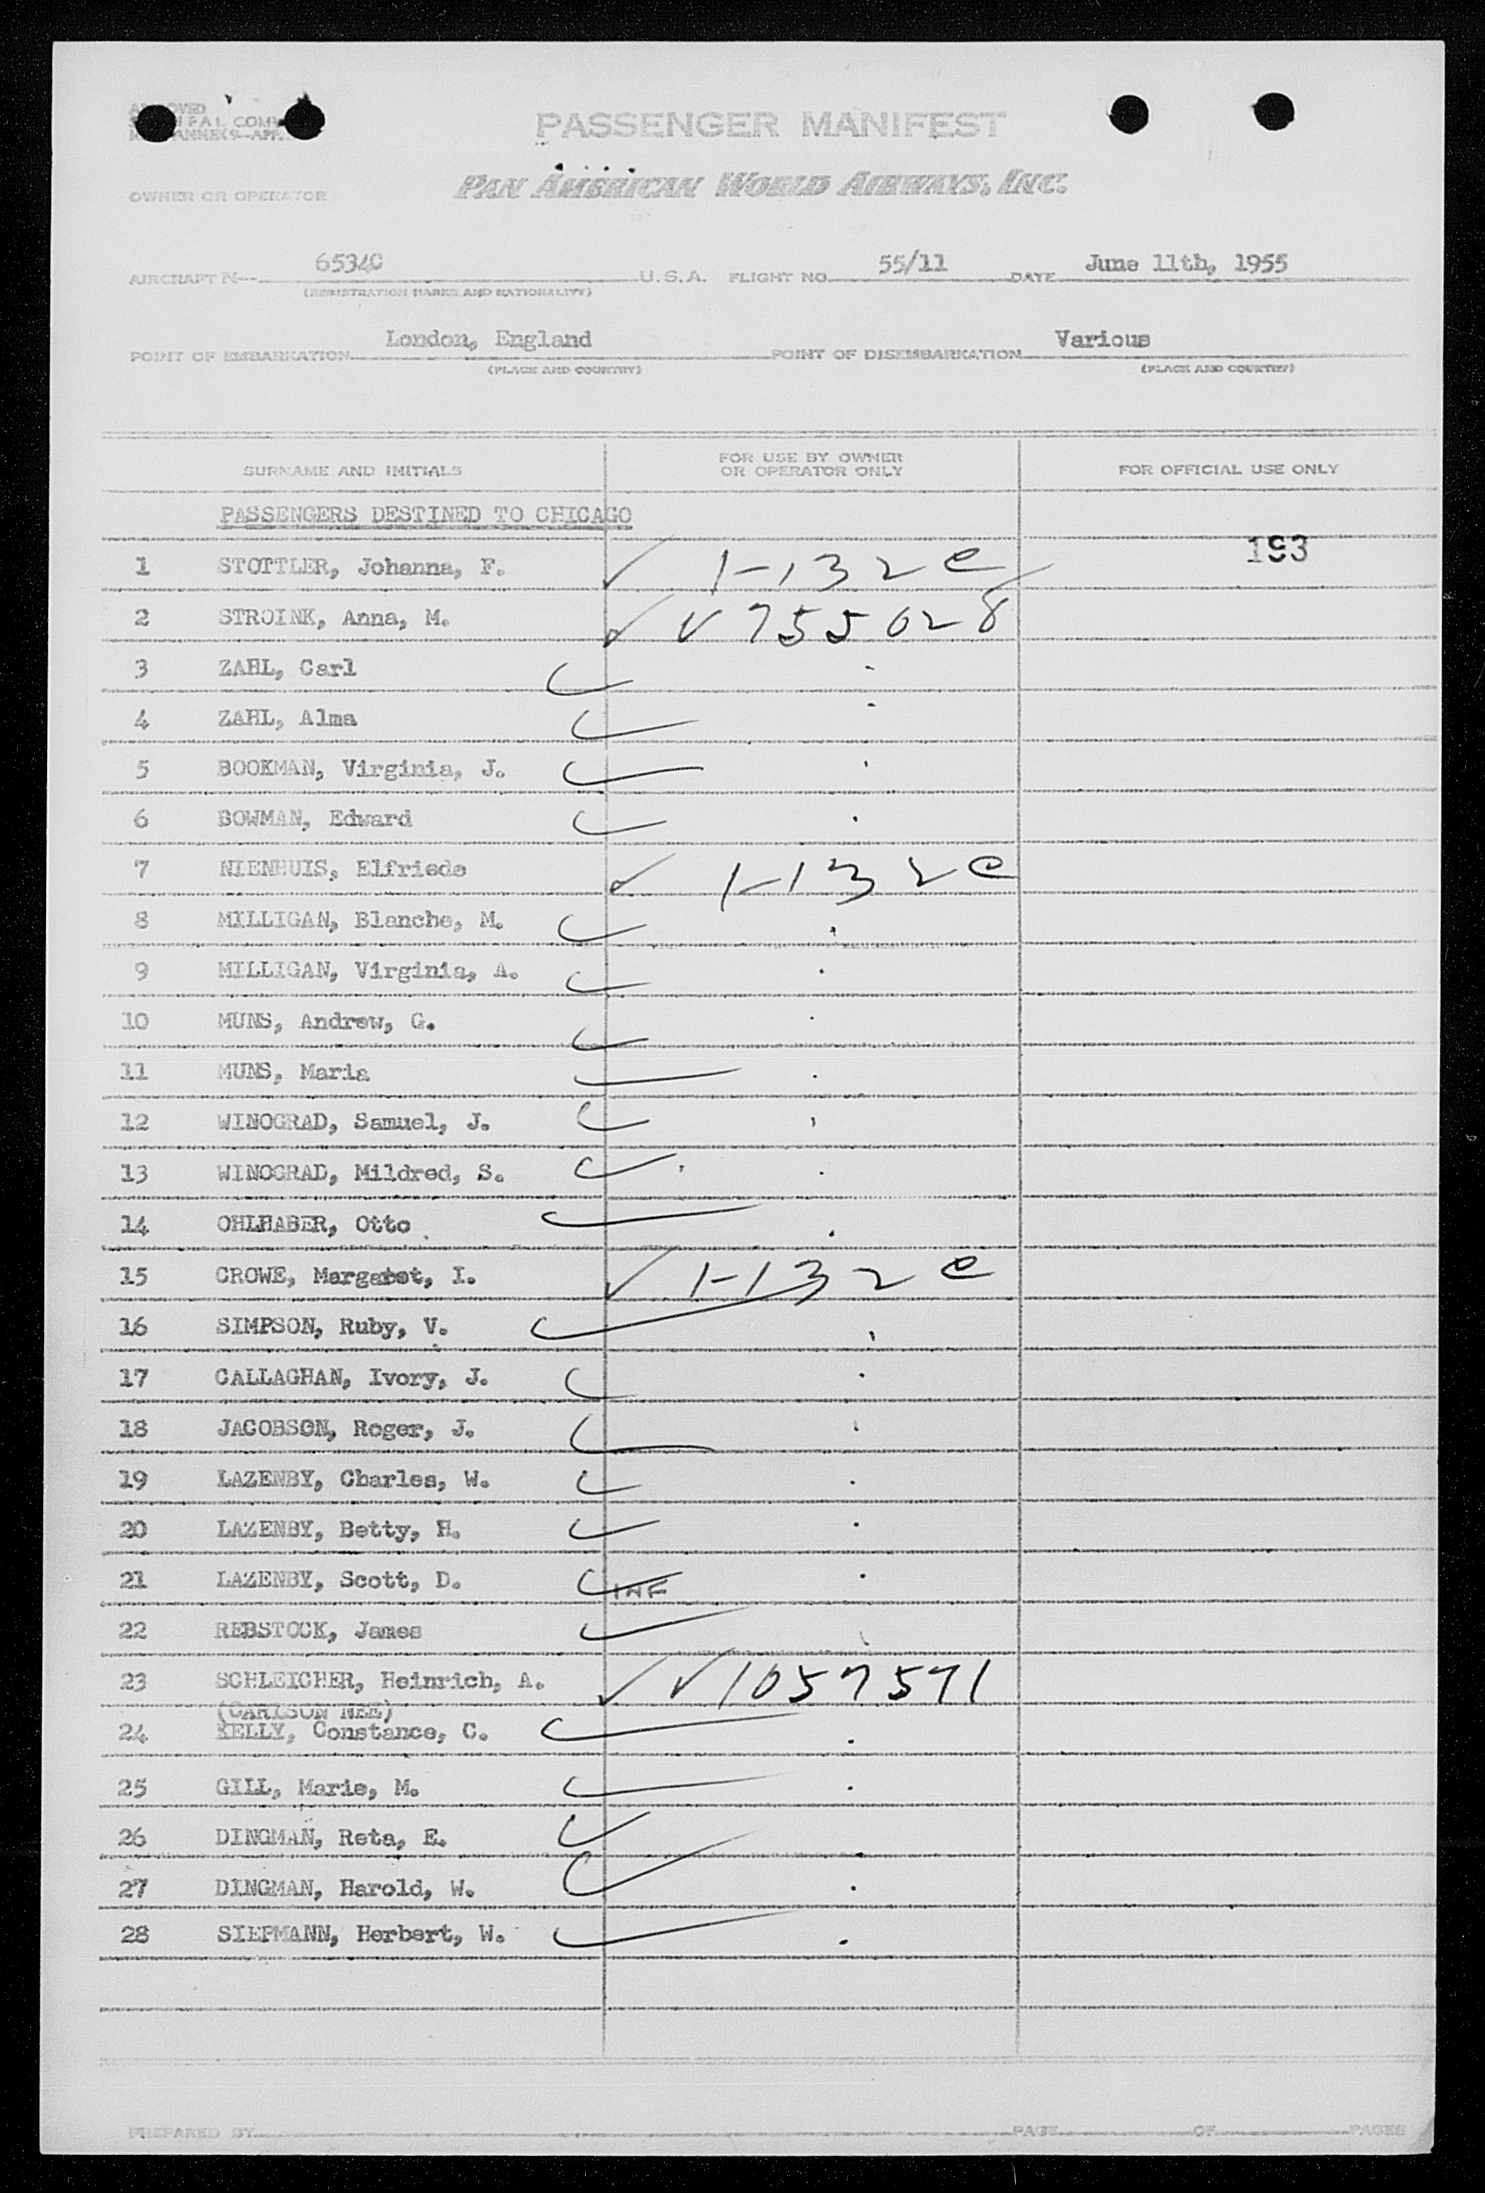 PASSENGER MANIFEST
PAN AMERICAN WORLD AIRWAYS, INC.
OWNER OR OPERATOR
AIRCRAFT N— 65340 U.S.A. FLIGHT NO. 55/11 DATE June 11th, 1955
(REGISTRATION MARKS AND NATIONALITY)
POINT OF EMBARKATION London, England POINT OF DISEMBARKATION Various
(PLACE AND COUNTRY) (PLACE AND COUNTRY)
SURNAME AND INITIALS FOR USE BY OWNER OR OPERATOR ONLY FOR OFFICIAL USE ONLY
PASSENGERS DESTINED TO CHICAGO
1 STOTTLER, Johanna, F. ✓ 1-132e 193
2 STROINK, Anna, M. ✓ ✓ 755028
3 ZAHL, Carl ✓
4 ZAHL, Alma ✓
5 BOOKMAN, Virginia, J. ✓
6 BOWMAN, Edward ✓
7 NIENHUIS, Elfriede ✓ 1-132e
8 MILLIGAN, Blanche, M. ✓
9 MILLIGAN, Virginia, A. ✓
10 MUNS, Andrew, G. ✓
11 MUNS, Maria ✓
12 WINOGRAD, Samuel, J. ✓
13 WINOGRAD, Mildred, S. ✓
14 OHLHABER, Otto ✓
15 CROWE, Margaret, I. ✓ 1-132e
16 SIMPSON, Ruby, V. ✓
17 CALLAGHAN, Ivory, J. ✓
18 JACOBSON, Roger, J. ✓
19 LAZENBY, Charles, W. ✓
20 LAZENBY, Betty, H. ✓
21 LAZENBY, Scott, D. ✓ INF
22 REBSTOCK, James ✓
23 SCHLEICHER, Heinrich, A. ✓ ✓ 1057571
(CARLSON NEE)
24 KELLY, Constance, C. ✓
25 GILL, Marie, M. ✓
26 DINGMAN, Reta, E. ✓
27 DINGMAN, Harold, W. ✓
28 SIEPMANN, Herbert, W. ✓
PREPARED BY PAGE OF PAGES